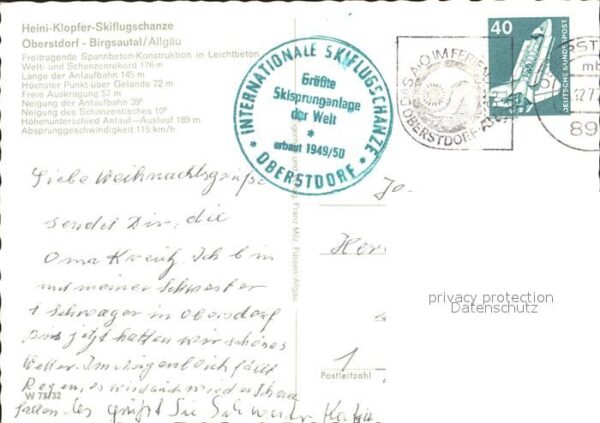 Heini-Klopfer-Skiflugschanze
Oberstdorf - Birgsautal/Allgäu
Freitragende Spannbeton-Konstruktion in Leichtbeton
Welt- und Schanzenrekord 176 m
Länge der Anlaufbahn 145 m
Höchster Punkt über Gelände 72 m
Freie Auskragung 57 m
Neigung der Anlaufbahn 39⁰
Neigung des Schanzentisches 10⁰
Höhenunterschied Anlauf-Auslauf 189 m
Absprunggeschwindigkeit 115 km/h
INTERNATIONALE SKIFLUGSCHANZE
Größte
Skisprunganlage
der Welt
*
erbaut 1949/50
* OBERSTDORF *
DAS A-O IM FERIEN
OBERSTDORF
40
DEUTSCHE BUNDESPOST
89
Liebe Weihnachtsgrüße
sendet Dir, die
Oma Kreutz. Ich bin
mit meiner Schwester
+ Schwager in Oberstdorf
Bis jetzt hatten wir schönes
Wetter. Im Augenblick fällt
Regen, es wird auch wieder Schnee
fallen. Es grüßt Sie
Franz Milz Füssen/Allgäu
Her
1
Postleitzahl
W 73/32
privacy protection
Datenschutz